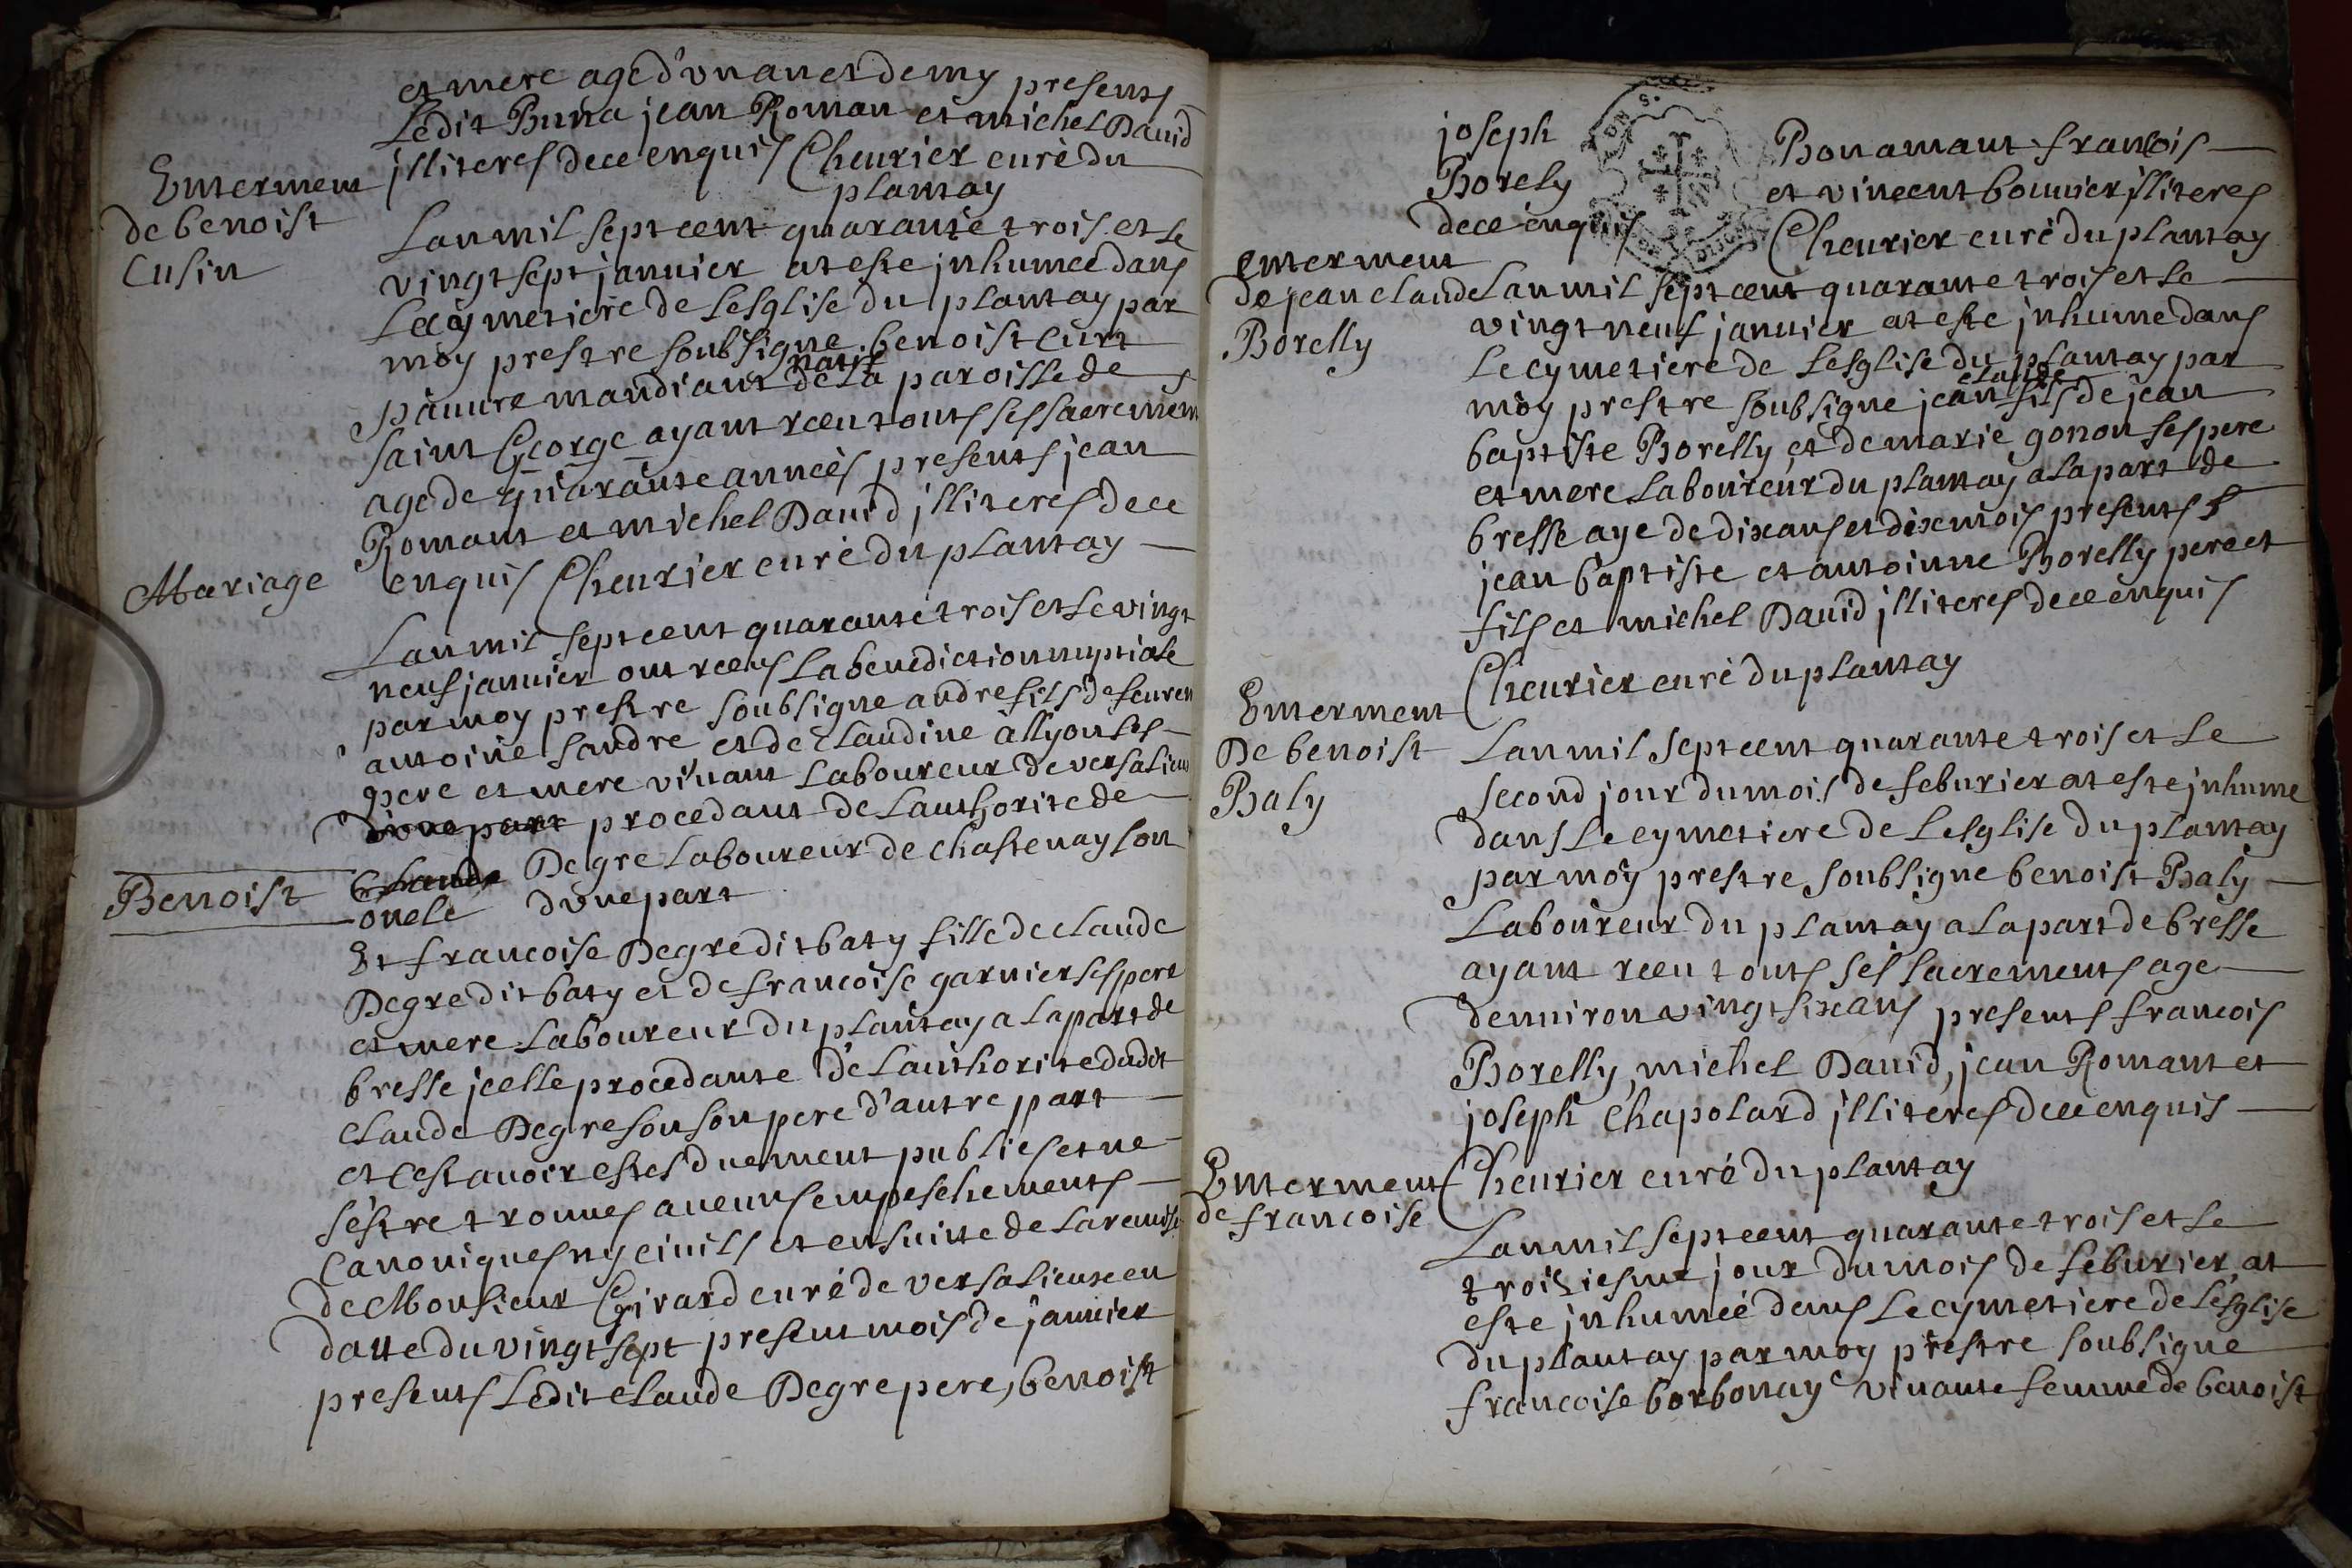 et mere age d'vn an et demy presents
Ledit Buna jean Roman et michel Dauid
jlliteres de ce enquis Cheurier curé du
plantay
Enterment
de benoist
Cusin
Lan mil sept cent quarante trois et le
vingt sept januier at este jnhumee dans
Le cymetiere de Lesglise du plantay par
moy prestre soubsigne benoist
pauure mandiant natif de La paroisse de
saint George ayant receu touts ses sacrements
age de quarante années presents jean
Romant et michel Dauid jlliteres de ce
enquis Cheurier curé du plantay
Mariage
Lan mil sept cent quarante trois et le vingt
neuf januier ont receus La benediction nuptiale
par moy prestre soubsigne andre fils de feu
antoine sandre et de Claudine allyon ses
pere et mere viuant Laboureur de versalieu
d'vne part procedant de Lauthorite de
Benoist
Claude Degre Laboureur de chastenay son
oncle d'vne part
Et francoise Degre dit baty fille de claude
Degre dit baty et de francoise garnier ses pere
et mere Laboureur du plantay a la part de
bresse jcelle procedante de Lauthorite dudit
claude Degre son pere d'autre part
et cest auoir estes duement publies et ne
s'estre trouues aucuns empeschements
canoniques ny ciuils et en suitte de La remise
de Monsieur Girard curé de versalieux en
datte du vingt sept present mois de januier
presents Ledit claude Degre pere, benoist
joseph
Borely
de ce enquis
Bonamant francois
et vincent bouuier jlliteres
Cheurier curé du plantay
enterment
de jean claude
Borelly
Lan mil sept cent quarante trois et le
vingt neuf januier at este jnhume dans
Le cymetiere de Lesglise du plantay par
moy prestre soubsigne jean claude fils de jean
baptiste Borelly et de marie gonon ses pere
et mere Laboureur du plantay a la part de
bresse age de dix ans et dix mois presents
jean baptiste et antoinne Borelly pere et
fils et michel Dauid jlliteres de ce enquis
Cheurier curé du plantay
Enterment
De benoist
Baly
Lan mil sept cent quarante trois et le
second jour du mois de feburier at este jnhume
dans Le cymetiere de Lesglise du plantay
par moy prestre soubsigne benoist Baly
Laboureur du plantay a la part de bresse
ayant receu touts ses sacrements age
denuiron vingt six ans presents francois
Borelly, michel Dauid, jean Romant et
joseph Chapolard jlliteres de ce enquis
Cheurier curé du plantay
Enterment
de francoise
Lan mil sept cent quarante trois et le
troisiesme jour du mois de feburier at
este jnhumée dans Le cymetiere de Lesglise
du plantay par moy prestre soubsigne
francoise borbonay viuante femme de benoist